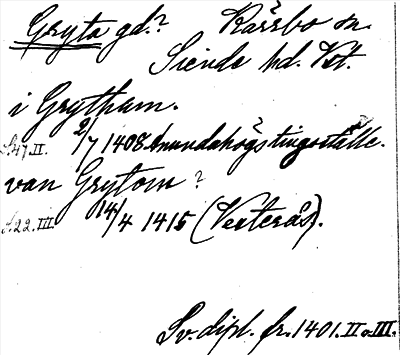 Gryta gd.? Kärrbo sn.
Siende hd. Vst.
i Grytham.
S.47.II. 2/7 1408. Anundahögs tingsställe.
van Grytom?
S.22.III. 14/4 1415 (Vesterås).
Sv. dipl. fr. 1401. II o. III.